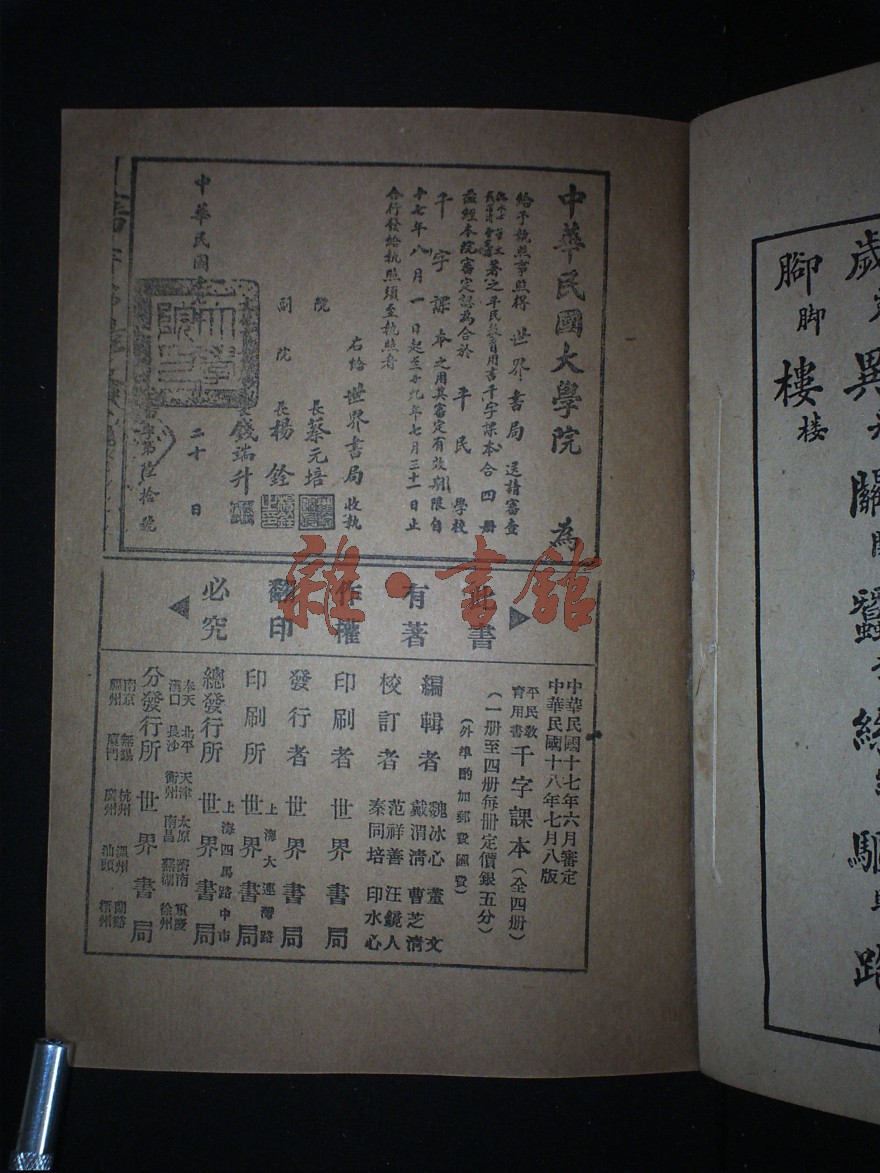 中華民國大學院 為
給予執照事照得 世界書局 送請審查
著之平民教育用書千字課本合四册
業經本院審定認為合於 平民 學校
千字課本之用其審定有效期限自
十七年八月一日起至廿九年七月三十一日止
合行發給執照須至執照者
右給世界書局收執
院長蔡元培
副院長楊銓
錢端升
中華民國
二十日
字第陸拾號
此書
有著
作權
翻印
必究
中華民國十七年六月審定
中華民國十八年七月八版
平民教育用書 千字課本（全四册）
（一册至四册每册定價銀五分）
（外埠酌加郵費匯費）
編輯者 魏冰心 董文 戴渭清 曹芝清
校訂者 范祥善 汪鏡人 秦同培 印水心
印刷者 世界書局
發行者 世界書局
印刷所 上海大連灣路 世界書局
總發行所 上海四馬路中市 世界書局
奉天 北平 天津 太原 濟南 重慶
漢口 長沙 衡州 南昌 蕪湖 徐州
分發行所 世界書局
南京 無錫 杭州 溫州 蘭谿
廈門 廣州 汕頭 梧州
歲 異 關 蠶 絲 驅 路
腳 脚 樓 楼
雜·書館